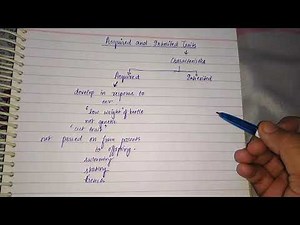 Acquired and Inherited Traits
Characteristics
Acquired Inherited
develop in response to
env
"low weight" of beetle
not genetic
"cut tail"
not passed on from parents
to offspring.
swimming
skating
French